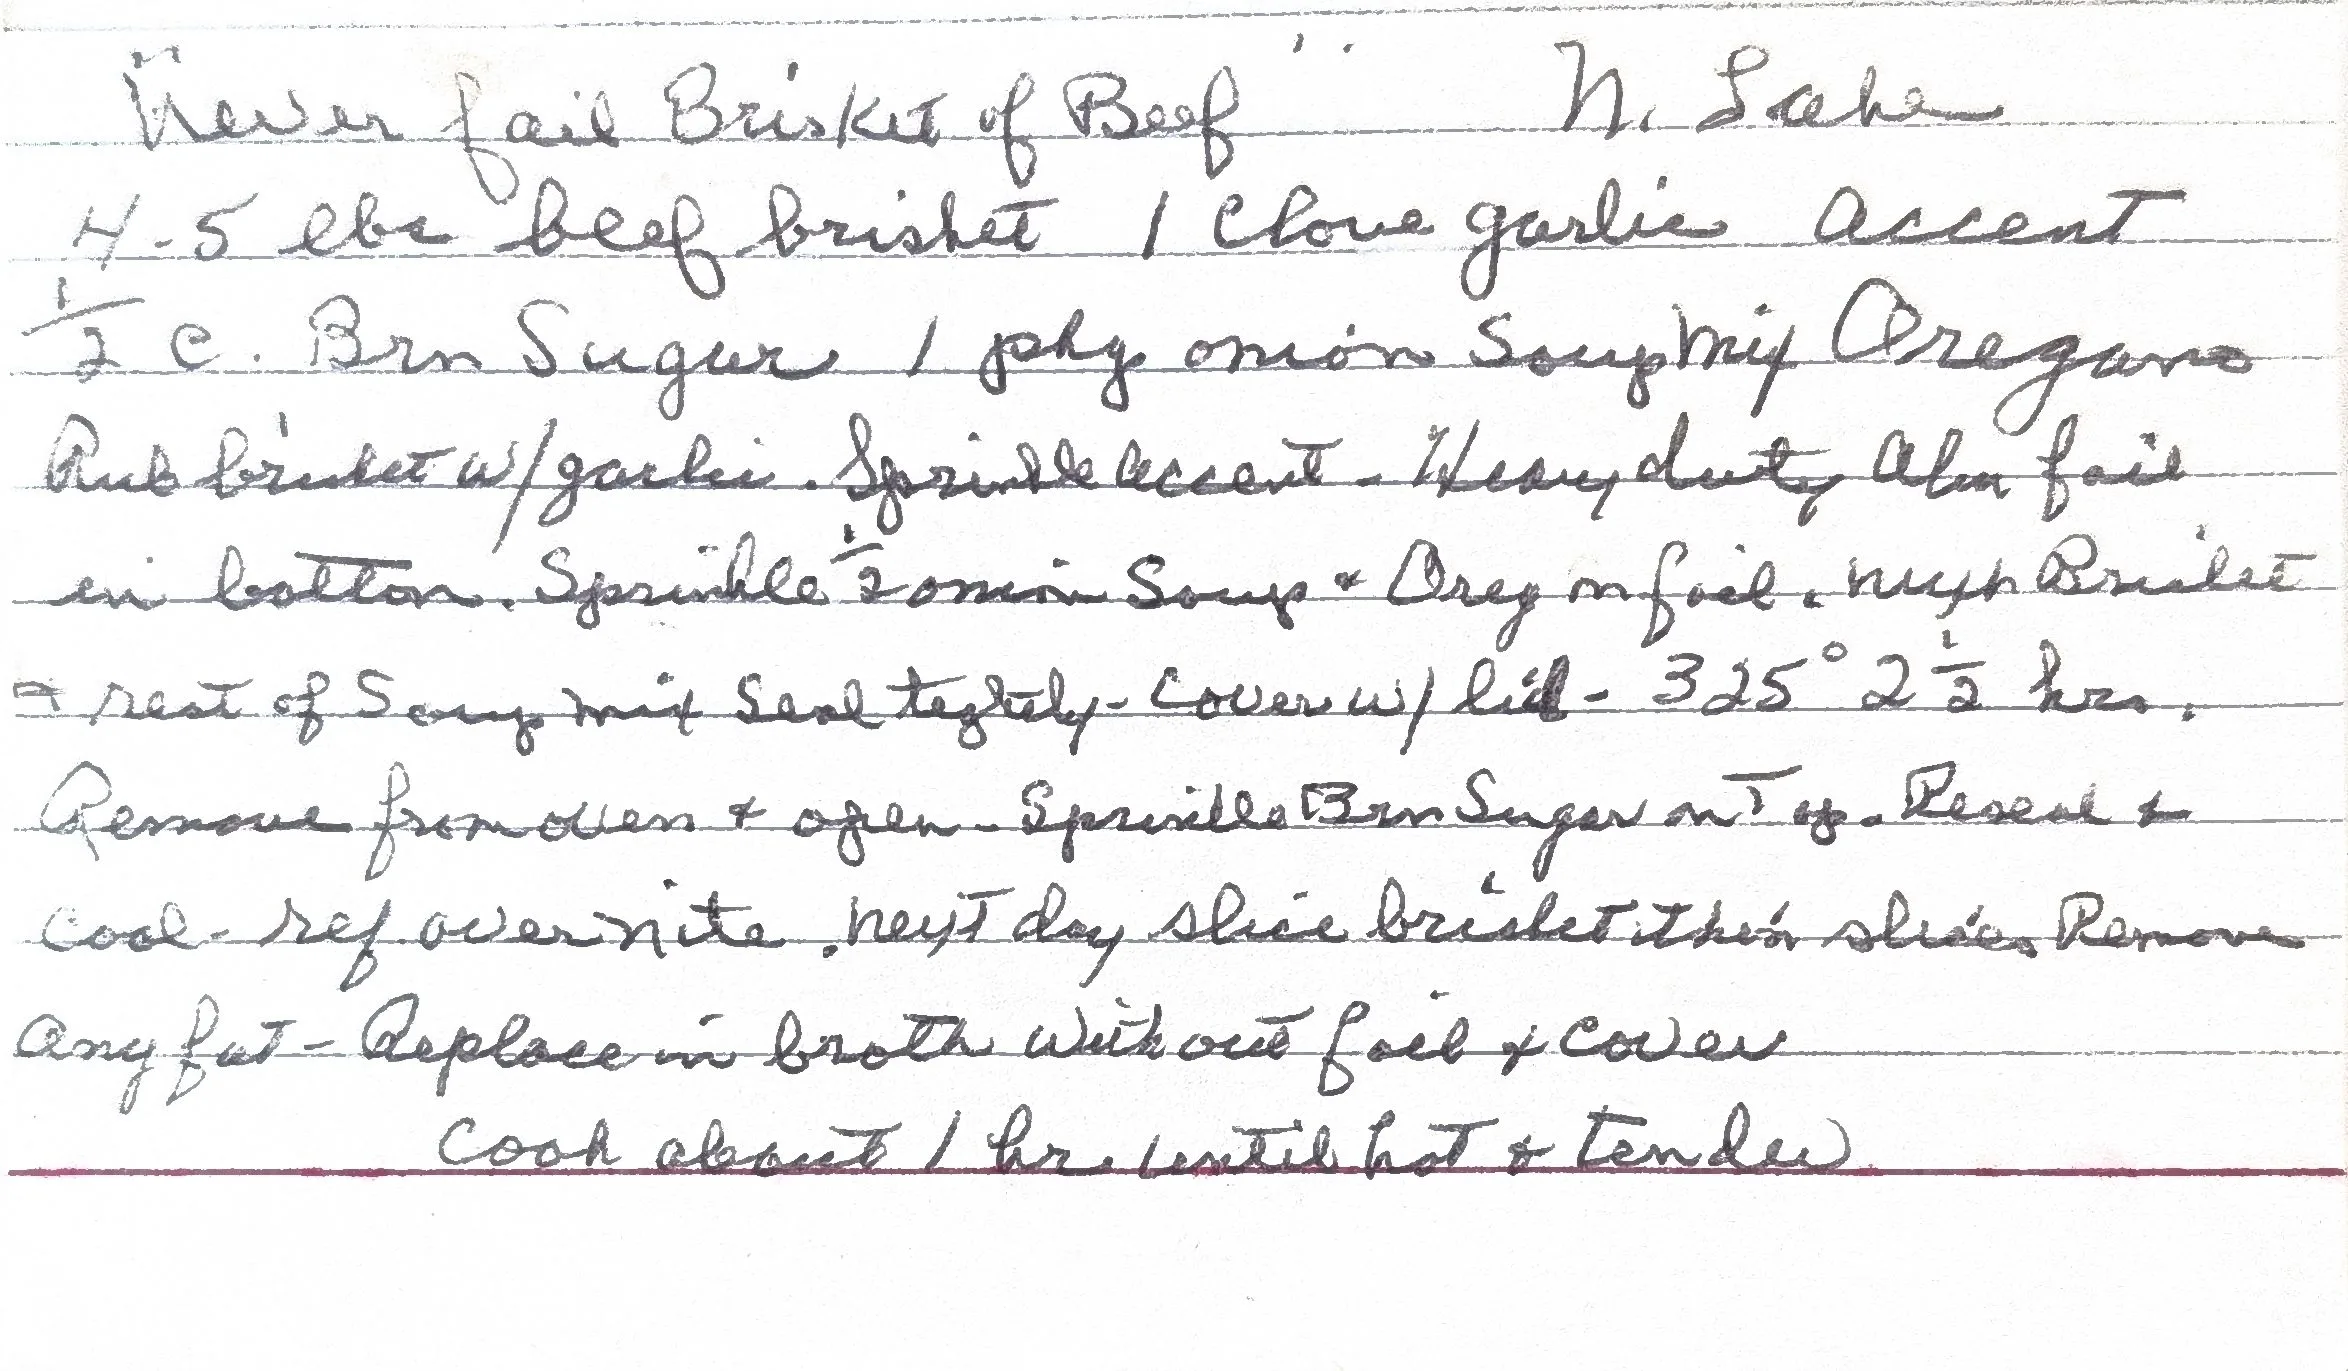 "Never fail Brisket of Beef" N. Lahe
4-5 lbs beef brisket 1 Clove garlic Accent
1/2 c. Brn Sugar 1 pkg onion Soup Mix Oregano
Rub brisket w/garlic. Sprinkle Accent - Heavy duty Alm foil
in bottom. Sprinkle 1/2 onion Soup & Oreg on foil. next Brisket
& rest of Soup mix Seal tightly - Cover w/ lid - 325° 2 1/2 hrs.
Remove from oven & open - Sprinkle Brn Sugar on Top. Reseal &
cool - ref overnite. next day slice brisket thin slices Remove
any fat - Replace in broth without foil & cover
Cook about 1 hr. until hot & tender